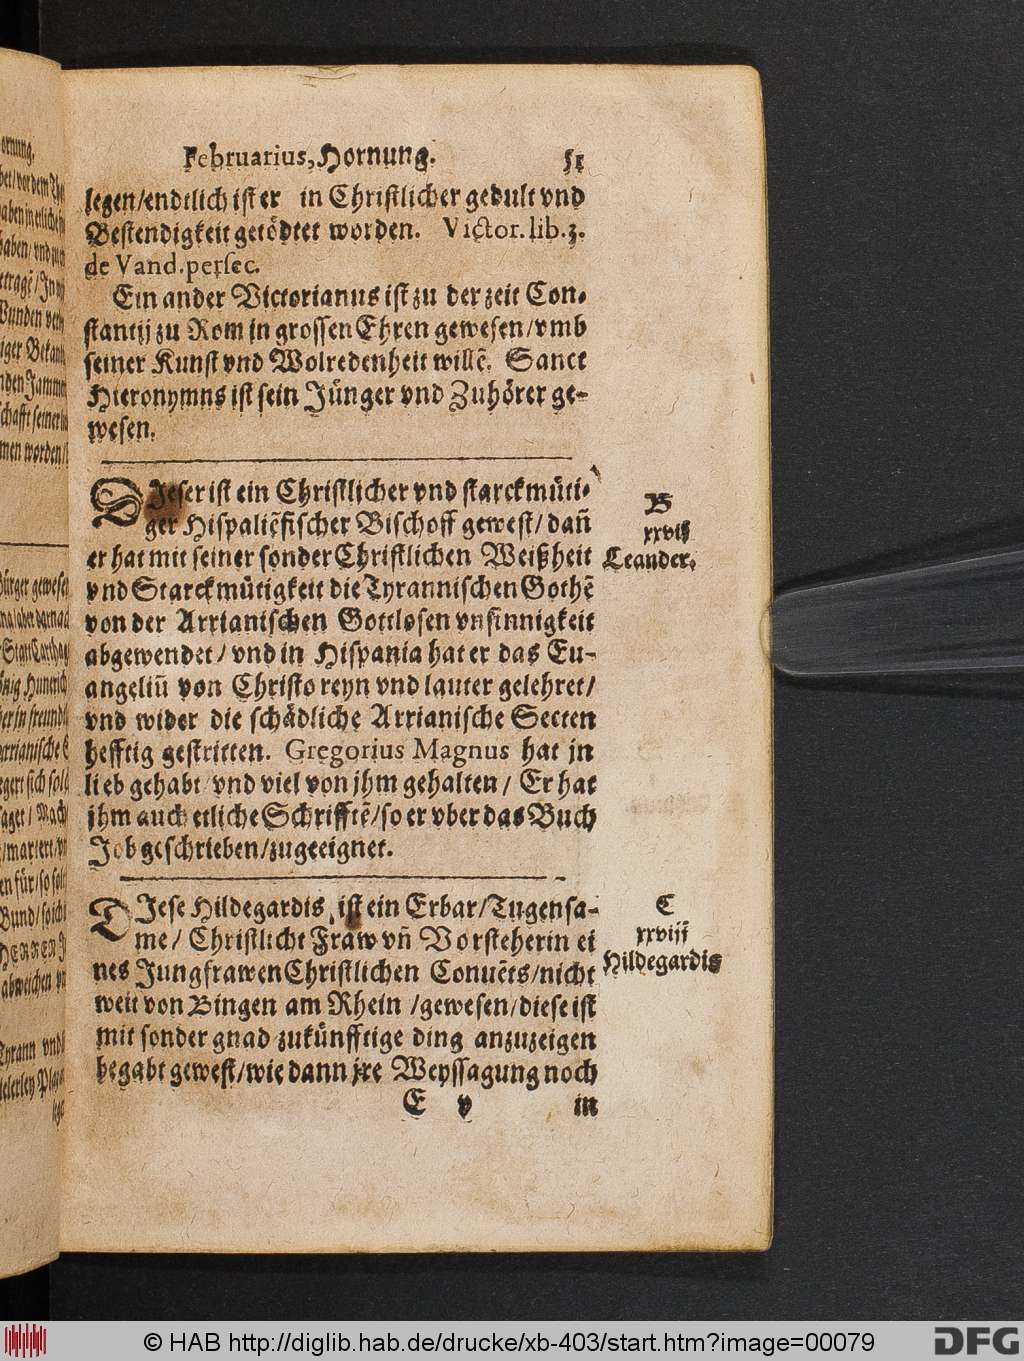 Februarius, Hornung. 51
legen/endtlich ist er in Christlicher gedult vnd
Bestendigkeit getödtet worden. Victor. lib. 3.
de Vand. persec.
Ein ander Victorianus ist zu der zeit Con-
stantij zu Rom in grossen Ehren gewesen/vmb
seiner Kunst vnd Wolredenheit willē. Sanct
Hieronymns ist sein Jünger vnd Zuhörer ge-
wesen.
DJeser ist ein Christlicher vnd starckmüti-
ger Hispaliēsischer Bischoff gewest/dañ
er hat mit seiner sonder Christlichen Weißheit
vnd Starckmütigkeit die Tyrannischen Gothē
von der Arrianischen Gottlosen vnsinnigkeit
abgewendet/vnd in Hispania hat er das Eu-
angeliū von Christo reyn vnd lauter gelehret/
vnd wider die schädliche Arrianische Secten
hefftig gestritten. Gregorius Magnus hat jn
lieb gehabt/vnd viel von jhm gehalten/ Er hat
jhm auch etliche Schrifftē/so er vber das Buch
Job geschrieben/zugeeignet.
B
xxvij
Leander.
DJese Hildegardis, ist ein Erbar/Tugensa-
me/ Christlicht Fraw vñ Vorsteherin ei
nes Jungfrawen Christlichen Conuēts/nicht
weit von Bingen am Rhein /gewesen/diese ist
mit sonder gnad zukünfftige ding anzuzeigen
begabt gewest/wie dann jre Weyssagung noch
E v in
C
xxviij
Hildegardis
© HAB http://diglib.hab.de/drucke/xb-403/start.htm?image=00079
DFG